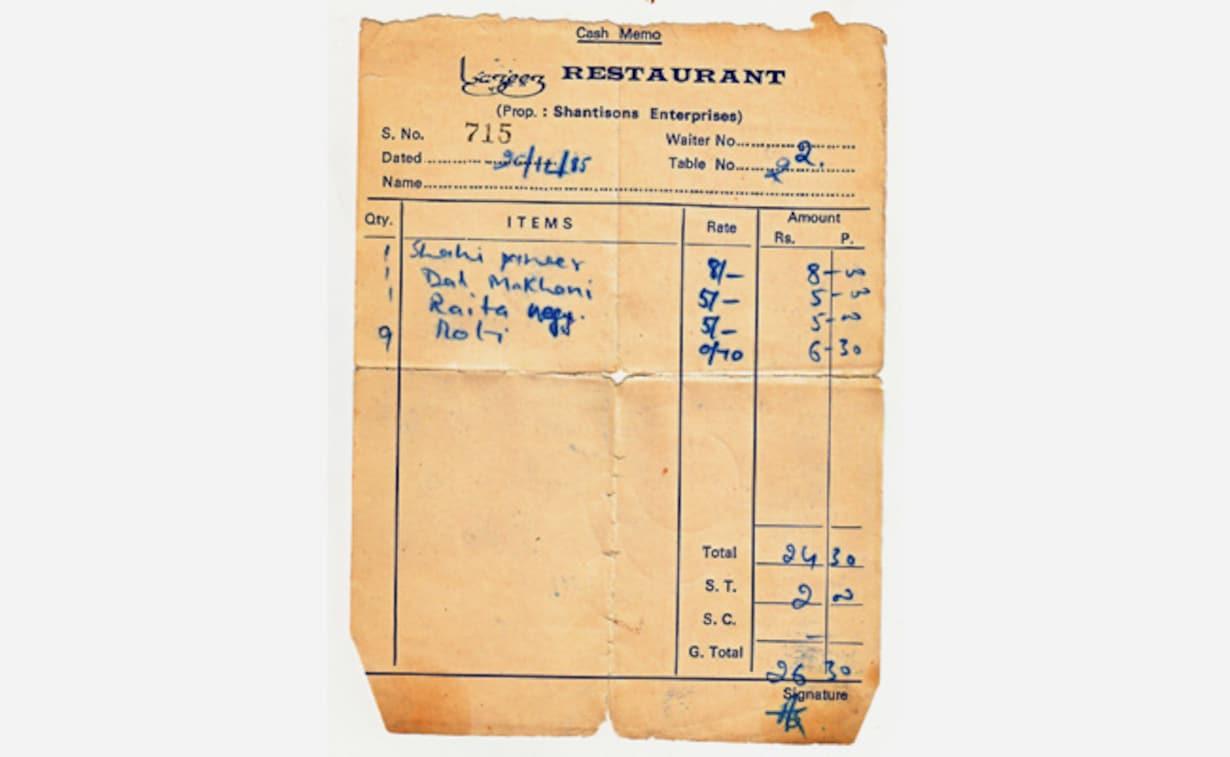 Cash Memo
Lazeez RESTAURANT
(Prop. : Shantisons Enterprises)
S. No. 715 Waiter No. 2.
Dated 20/12/85 Table No. 2
Name
Qty. ITEMS Rate Amount
Rs. P.
1 Shahi paneer 8/- 8-00
1 Dal Makhani 5/- 5-00
1 Raita vegy. 5/- 5-00
9 Roti 0/70 6-30
Total 24 30
S. T. 2 00
S. C. -
G. Total 26 30
Signature